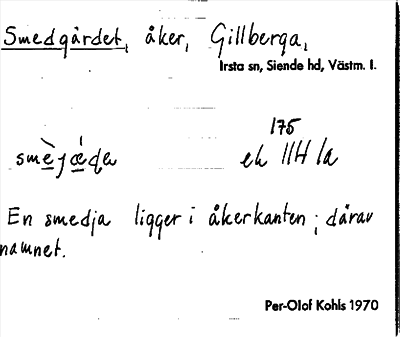 Smedgärdet, åker, Gillberga,
Irsta sn, Siende hd, Västm. l.
175
smè̱jǽ̱da ek 11H 1a
En smedja ligger i åkerkanten; därav
namnet.
Per-Olof Kohls 1970